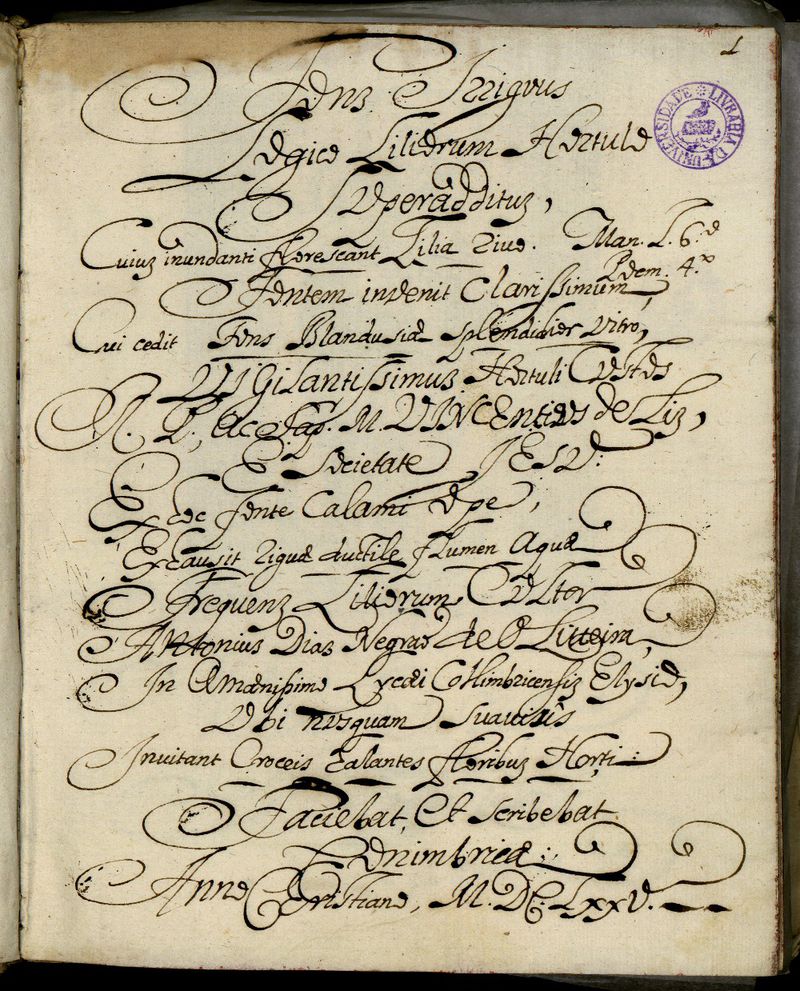 1
Fons Irriguus
Logico Liliorum Hortulo
Superadditus,
Cuius inundanti florescant Lilia rivo. Man. L. 6.º
Idem. 4.º
Fontem invenit Clarissimum,
Cui cedit Fons Blandusiæ splendidior vitro,
VIGilantissimus Hortuli CUStos
R. P. ac Sap. M. VINCENtius de Liz,
E Societate JESU.
Ex eoc fonte Calami ope,
Exhausit riguæ ductile flumen aquæ
Frequens Liliorum CULtor
Antonius Dias Negrao de Oliveira,
In Amænissimo Lycæi Colimbricensis Elysio,
Ubi nusquam Suavius
Invitant Croceis halantes floribus Horti:
Faciebat, Et Scribebat
Conimbricæ:
Anno Christiano, M. DC. LXXV.
LIVRARIA DA UNIVERSIDADE